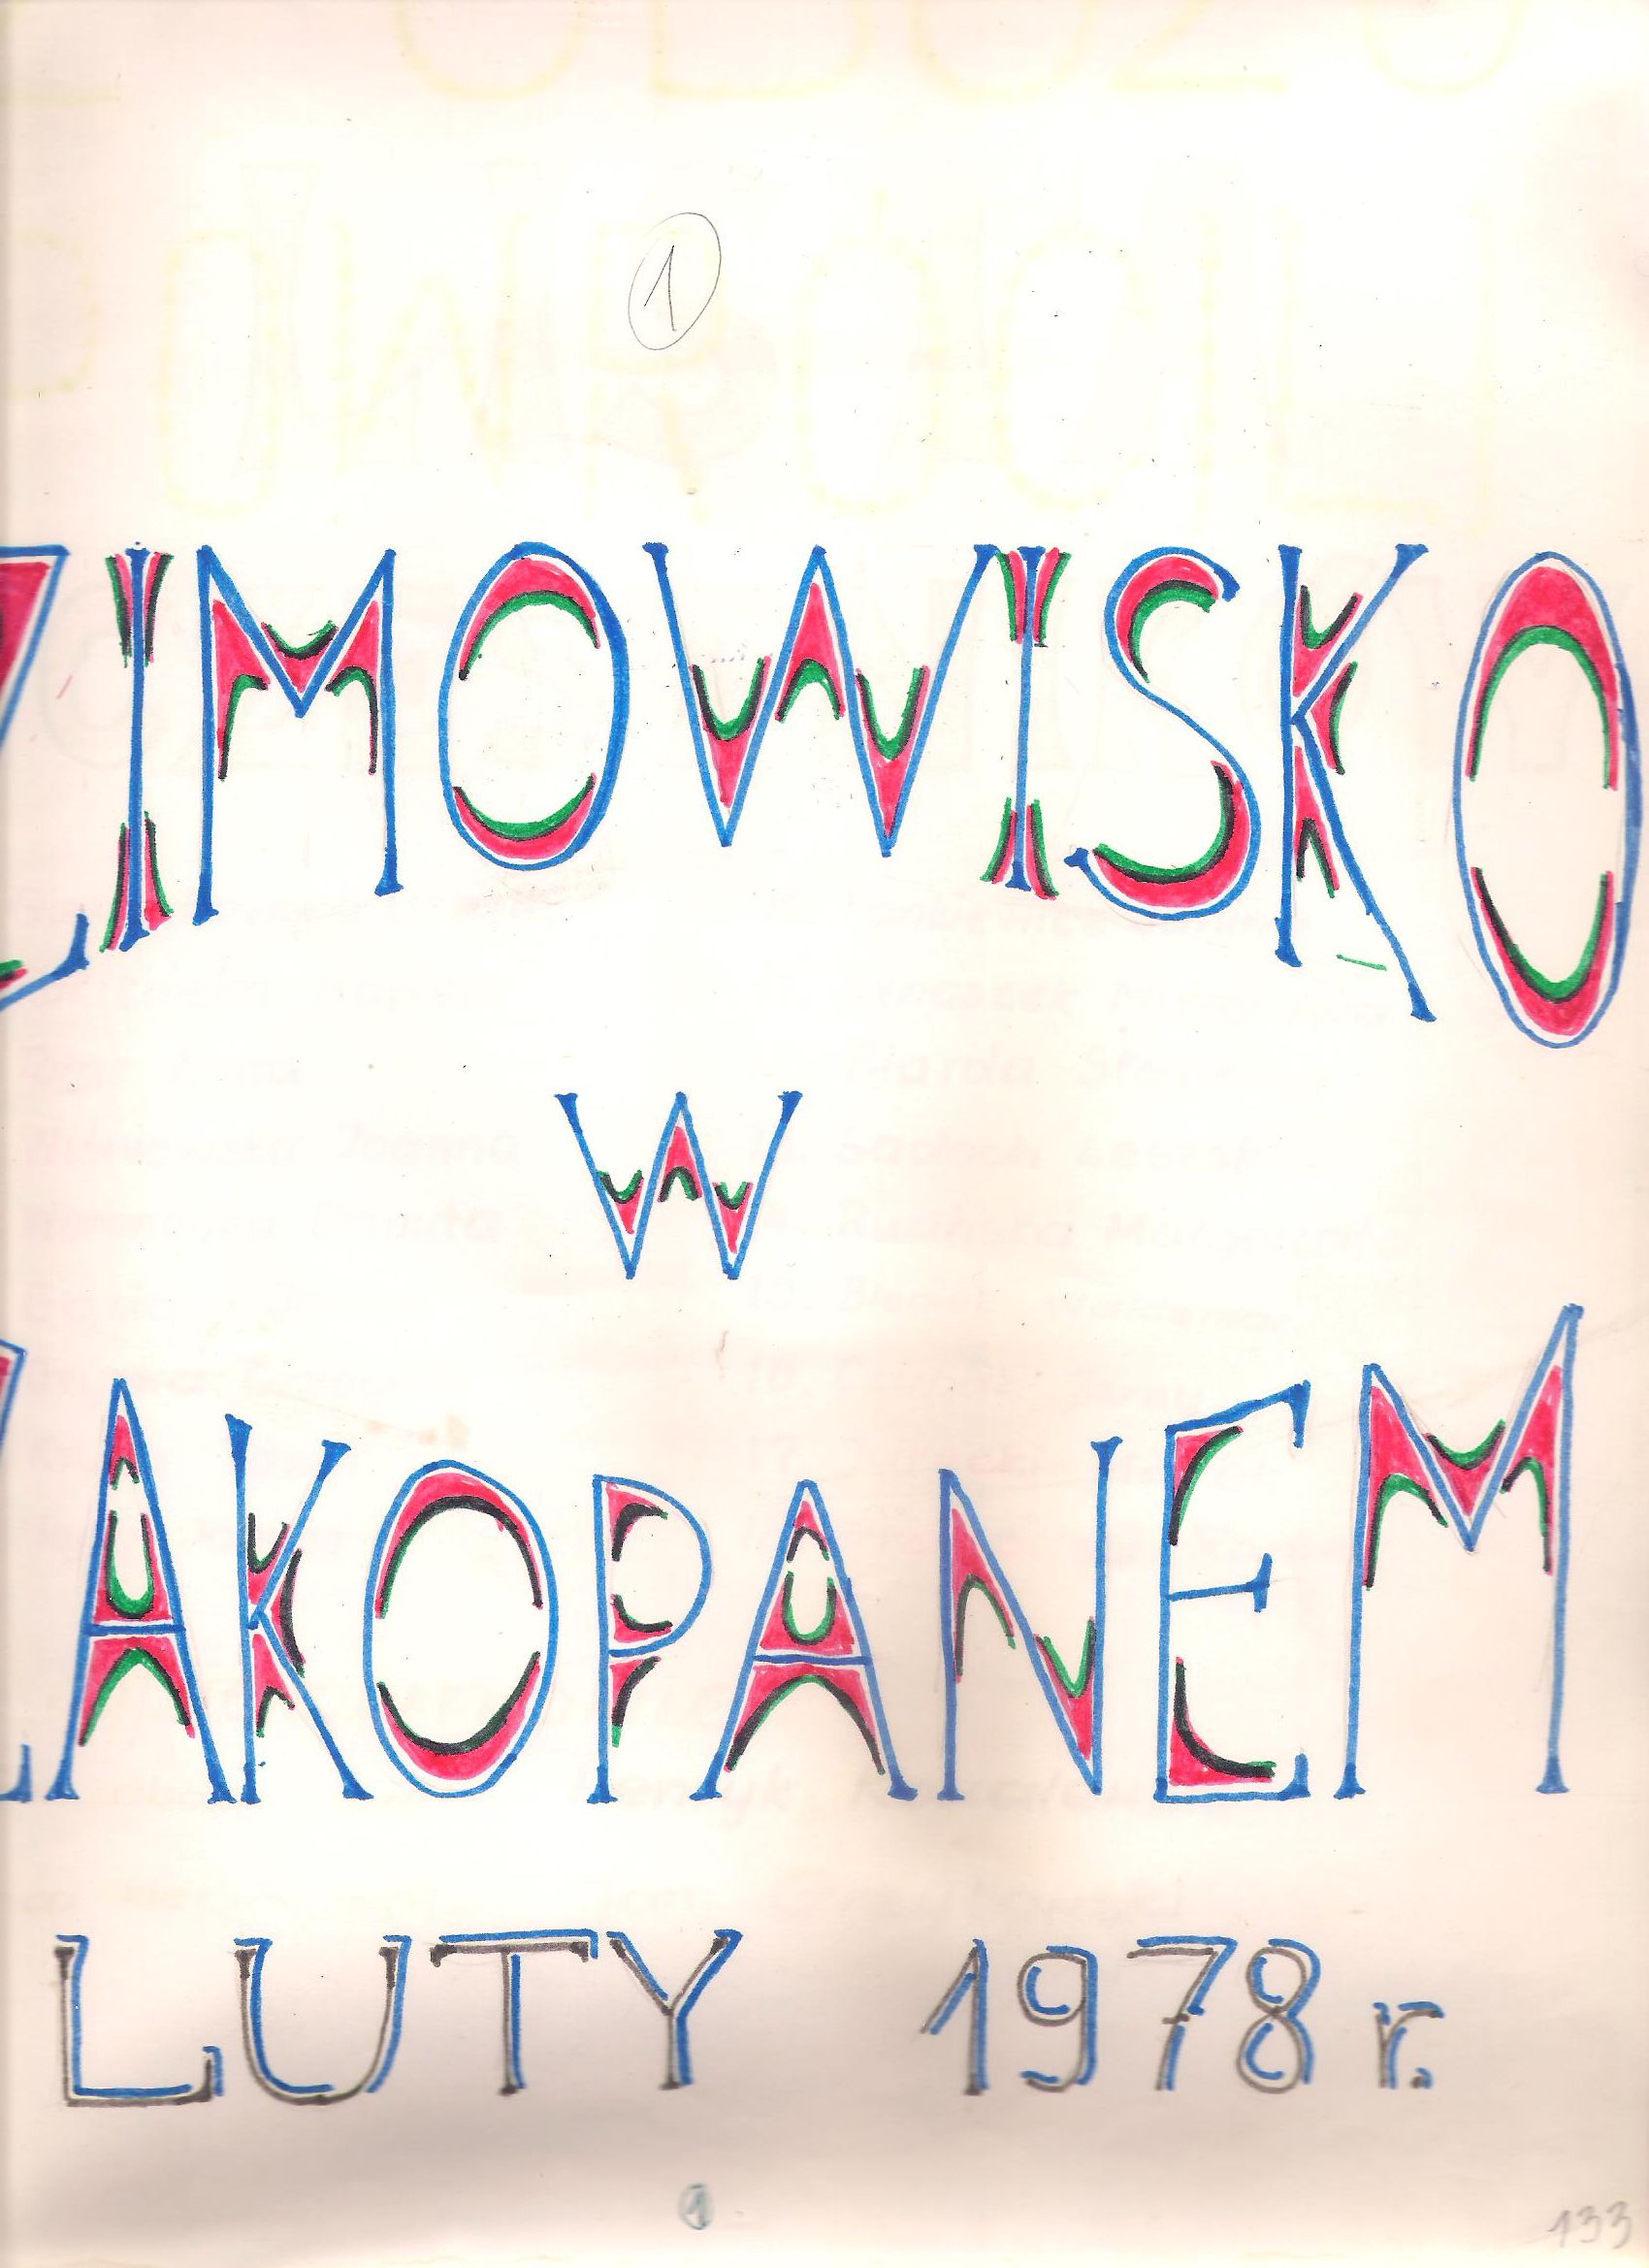 1
ZIMOWISKO
W
ZAKOPANEM
LUTY 1978 r.
1
133